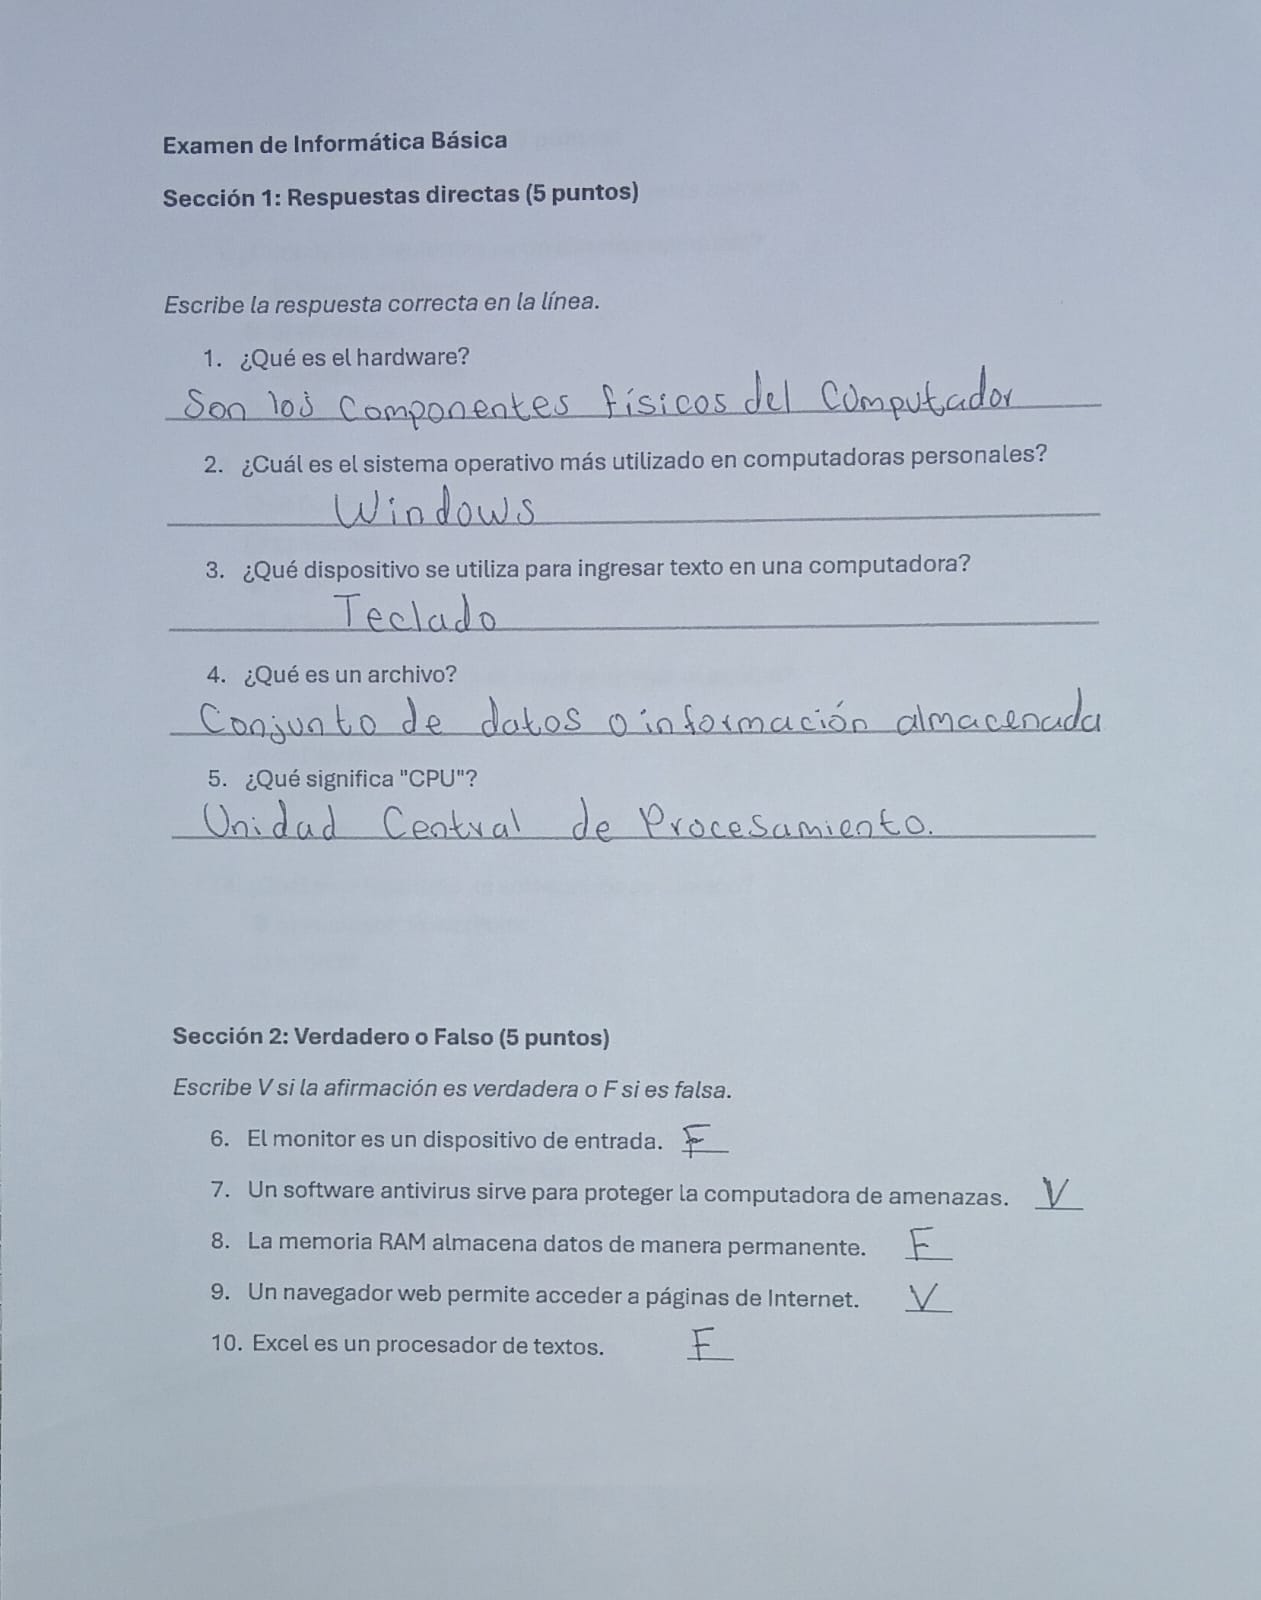 Examen de Informática Básica
Sección 1: Respuestas directas (5 puntos)
Escribe la respuesta correcta en la línea.
1. ¿Qué es el hardware?
Son los Componentes físicos del Computador
2. ¿Cuál es el sistema operativo más utilizado en computadoras personales?
Windows
3. ¿Qué dispositivo se utiliza para ingresar texto en una computadora?
Teclado
4. ¿Qué es un archivo?
Conjunto de datos o información almacenada
5. ¿Qué significa "CPU"?
Unidad Central de Procesamiento.
Sección 2: Verdadero o Falso (5 puntos)
Escribe V si la afirmación es verdadera o F si es falsa.
6. El monitor es un dispositivo de entrada. F
7. Un software antivirus sirve para proteger la computadora de amenazas. V
8. La memoria RAM almacena datos de manera permanente. F
9. Un navegador web permite acceder a páginas de Internet. V
10. Excel es un procesador de textos. F